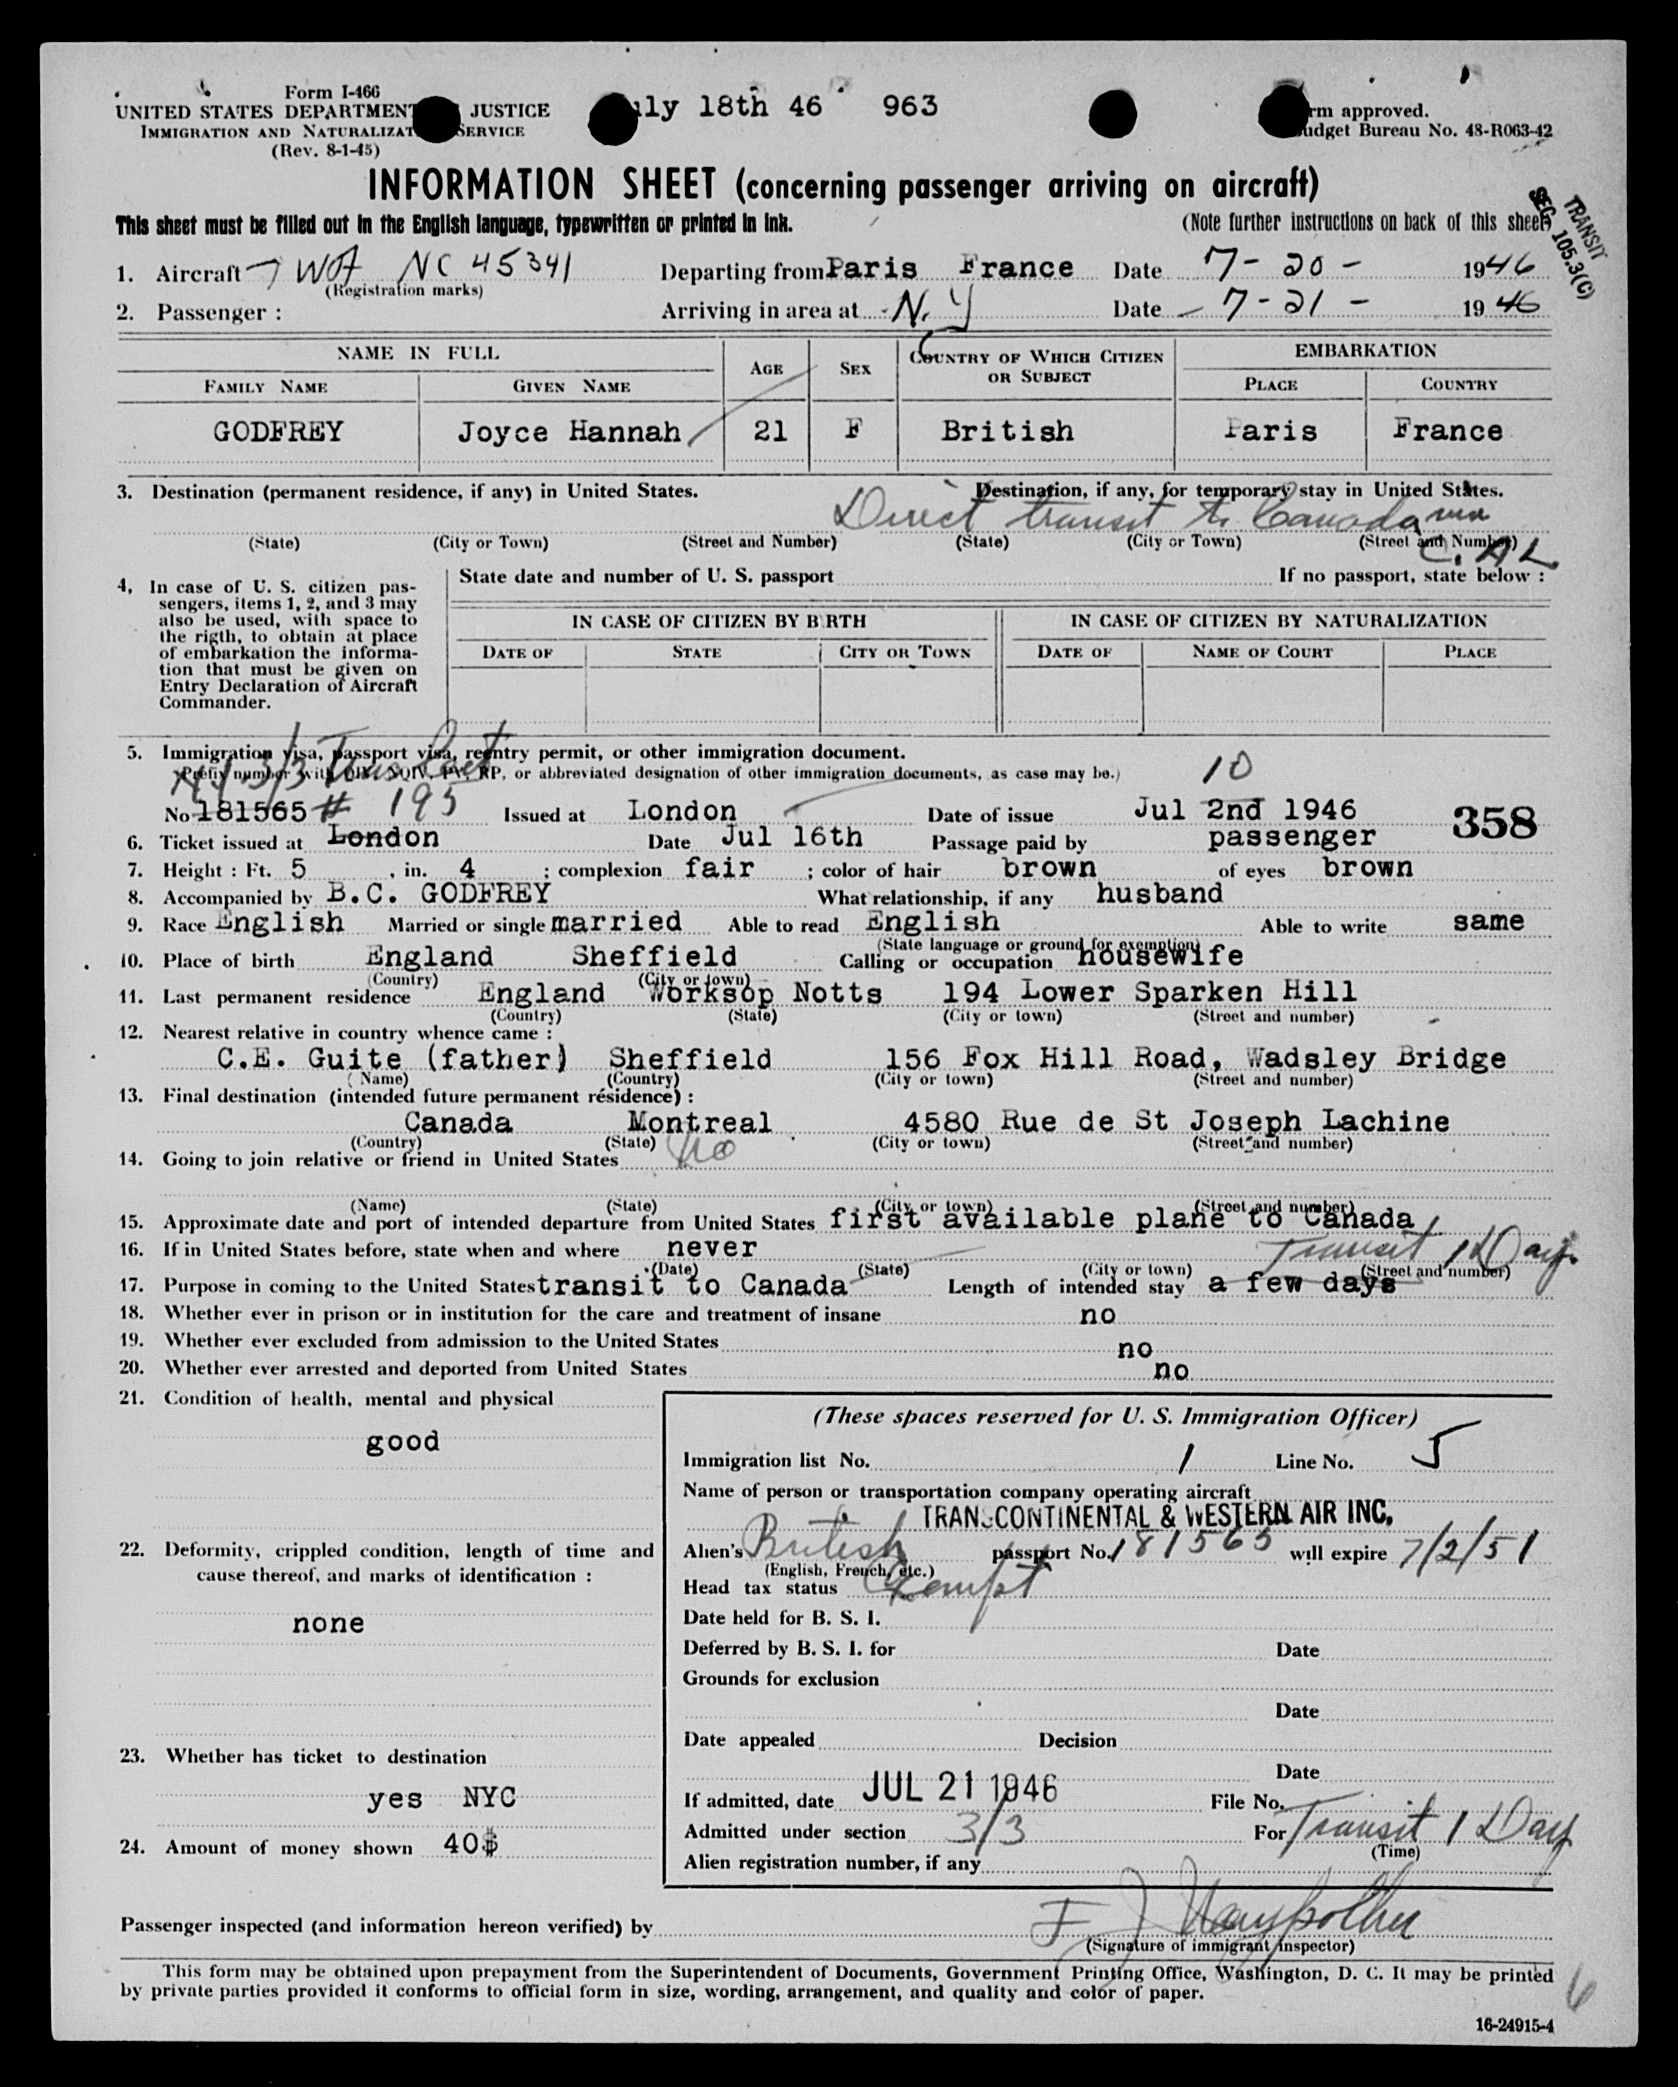 Form I-466
UNITED STATES DEPARTMENT JUSTICE uly 18th 46 963 rm approved.
IMMIGRATION AND NATURALIZAT SERVICE udget Bureau No. 43-R063-42
(Rev. 8-1-45)
INFORMATION SHEET (concerning passenger arriving on aircraft)
This sheet must be filled out in the English language, typewritten or printed in ink. (Note further instructions on back of this sheet)
TRANSIT
SEC 105.3(C)
1. Aircraft NC 45341 Departing from Paris France Date 7-20- 1946
(Registration marks)
2. Passenger : Arriving in area at N.Y Date 7-21- 1946
NAME IN FULL AGE SEX COUNTRY OF WHICH CITIZEN OR SUBJECT EMBARKATION
FAMILY NAME GIVEN NAME PLACE COUNTRY
GODFREY Joyce Hannah 21 F British Paris France
3. Destination (permanent residence, if any) in United States. Destination, if any, for temporary stay in United States.
Direct transit to Canada via
(State) (City or Town) (Street and Number) (State) (City or Town) (Street and Number)
C.A.L.
4. In case of U. S. citizen pas-
sengers, items 1, 2, and 3 may
also be used, with space to
the rigth, to obtain at place
of embarkation the informa-
tion that must be given on
Entry Declaration of Aircraft
Commander.
State date and number of U. S. passport If no passport, state below :
IN CASE OF CITIZEN BY BIRTH IN CASE OF CITIZEN BY NATURALIZATION
DATE OF STATE CITY OR TOWN DATE OF NAME OF COURT PLACE
5. Immigration visa, passport visa, reentry permit, or other immigration document.
(Prefix number with QIV, NQIV, PV, RP, or abbreviated designation of other immigration documents, as case may be.) 10
3/3
No 181565 # 195 Issued at London Date of issue Jul 2nd 1946 358
6. Ticket issued at London Date Jul 16th Passage paid by passenger
7. Height : Ft. 5 , in. 4 ; complexion fair ; color of hair brown of eyes brown
8. Accompanied by B.C. GODFREY What relationship, if any husband
9. Race English Married or single married Able to read English Able to write same
(State language or ground for exemption)
10. Place of birth England Sheffield Calling or occupation housewife
(Country) (City or town)
11. Last permanent residence England Worksop Notts 194 Lower Sparken Hill
(Country) (State) (City or town) (Street and number)
12. Nearest relative in country whence came :
C.E. Guite (father) Sheffield 156 Fox Hill Road, Wadsley Bridge
(Name) (Country) (City or town) (Street and number)
13. Final destination (intended future permanent résidence) :
Canada Montreal 4580 Rue de St Joseph Lachine
(Country) (State) (City or town) (Street and number)
14. Going to join relative or friend in United States No
(Name) (State) (City or town) (Street and number)
15. Approximate date and port of intended departure from United States first available plane to Canada
16. If in United States before, state when and where never Transit 1 Day.
(Date) (State) (City or town) (Street and number)
17. Purpose in coming to the United States transit to Canada Length of intended stay a few days
18. Whether ever in prison or in institution for the care and treatment of insane no
19. Whether ever excluded from admission to the United States no
20. Whether ever arrested and deported from United States no
21. Condition of health, mental and physical
good
22. Deformity, crippled condition, length of time and
cause thereof, and marks of identification :
none
23. Whether has ticket to destination
yes NYC
24. Amount of money shown 40$
(These spaces reserved for U. S. Immigration Officer)
Immigration list No. 1 Line No. 5
Name of person or transportation company operating aircraft
TRANSCONTINENTAL & WESTERN AIR INC.
Alien's British passport No. 181565 will expire 7/2/51
(English, French, etc.)
Head tax status Exempt
Date held for B. S. I.
Deferred by B. S. I. for Date
Grounds for exclusion
Date
Date appealed Decision
Date
If admitted, date JUL 21 1946 File No.
Admitted under section 3/3 For Transit 1 Day
(Time)
Alien registration number, if any
Passenger inspected (and information hereon verified) by F J
(Signature of immigrant inspector)
This form may be obtained upon prepayment from the Superintendent of Documents, Government Printing Office, Washington, D. C. It may be printed
by private parties provided it conforms to official form in size, wording, arrangement, and quality and color of paper.
6
16-24915-4